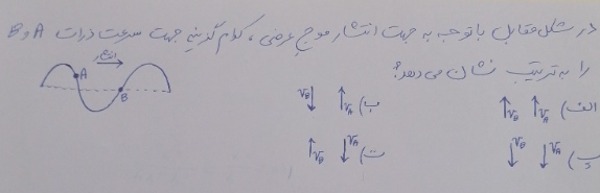 در شکل مقابل با توجه به جهت انتشار موج عرضی، کدام گزینه جهت سرعت ذرات A و B
را به ترتیب نشان می دهد؟
انتشار
A
B
الف) ↑V_A ↑V_B
ب) ↑V_A ↓V_B
پ) ↓V_A ↓V_B
ت) ↓V_A ↑V_B